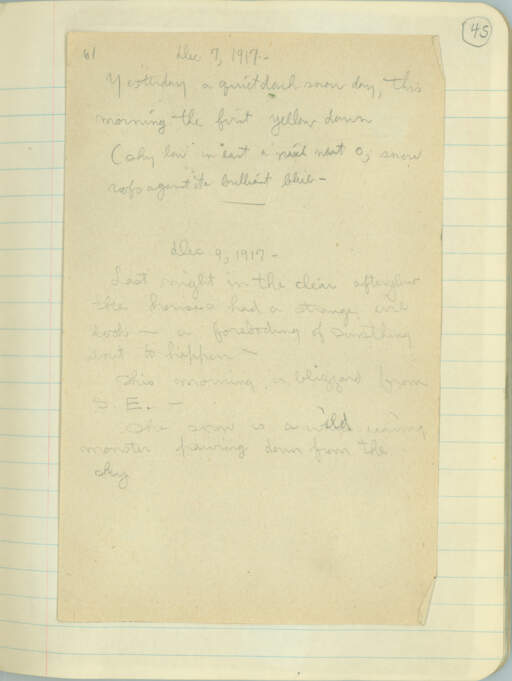 45
61 Dec 7, 1917 -
Yesterday a quiet dark snow day, this
morning the first yellow dawn
(sky low in east a next O, snow
roofs against its brilliant
Dec 9, 1917 -
Last night in the clear afterglow
the houses had a strange evil
look — a foreboding of something
about to happen —
This morning a blizzard from
S. E. —
The snow is a wild roaring
monster pouring down from the
sky